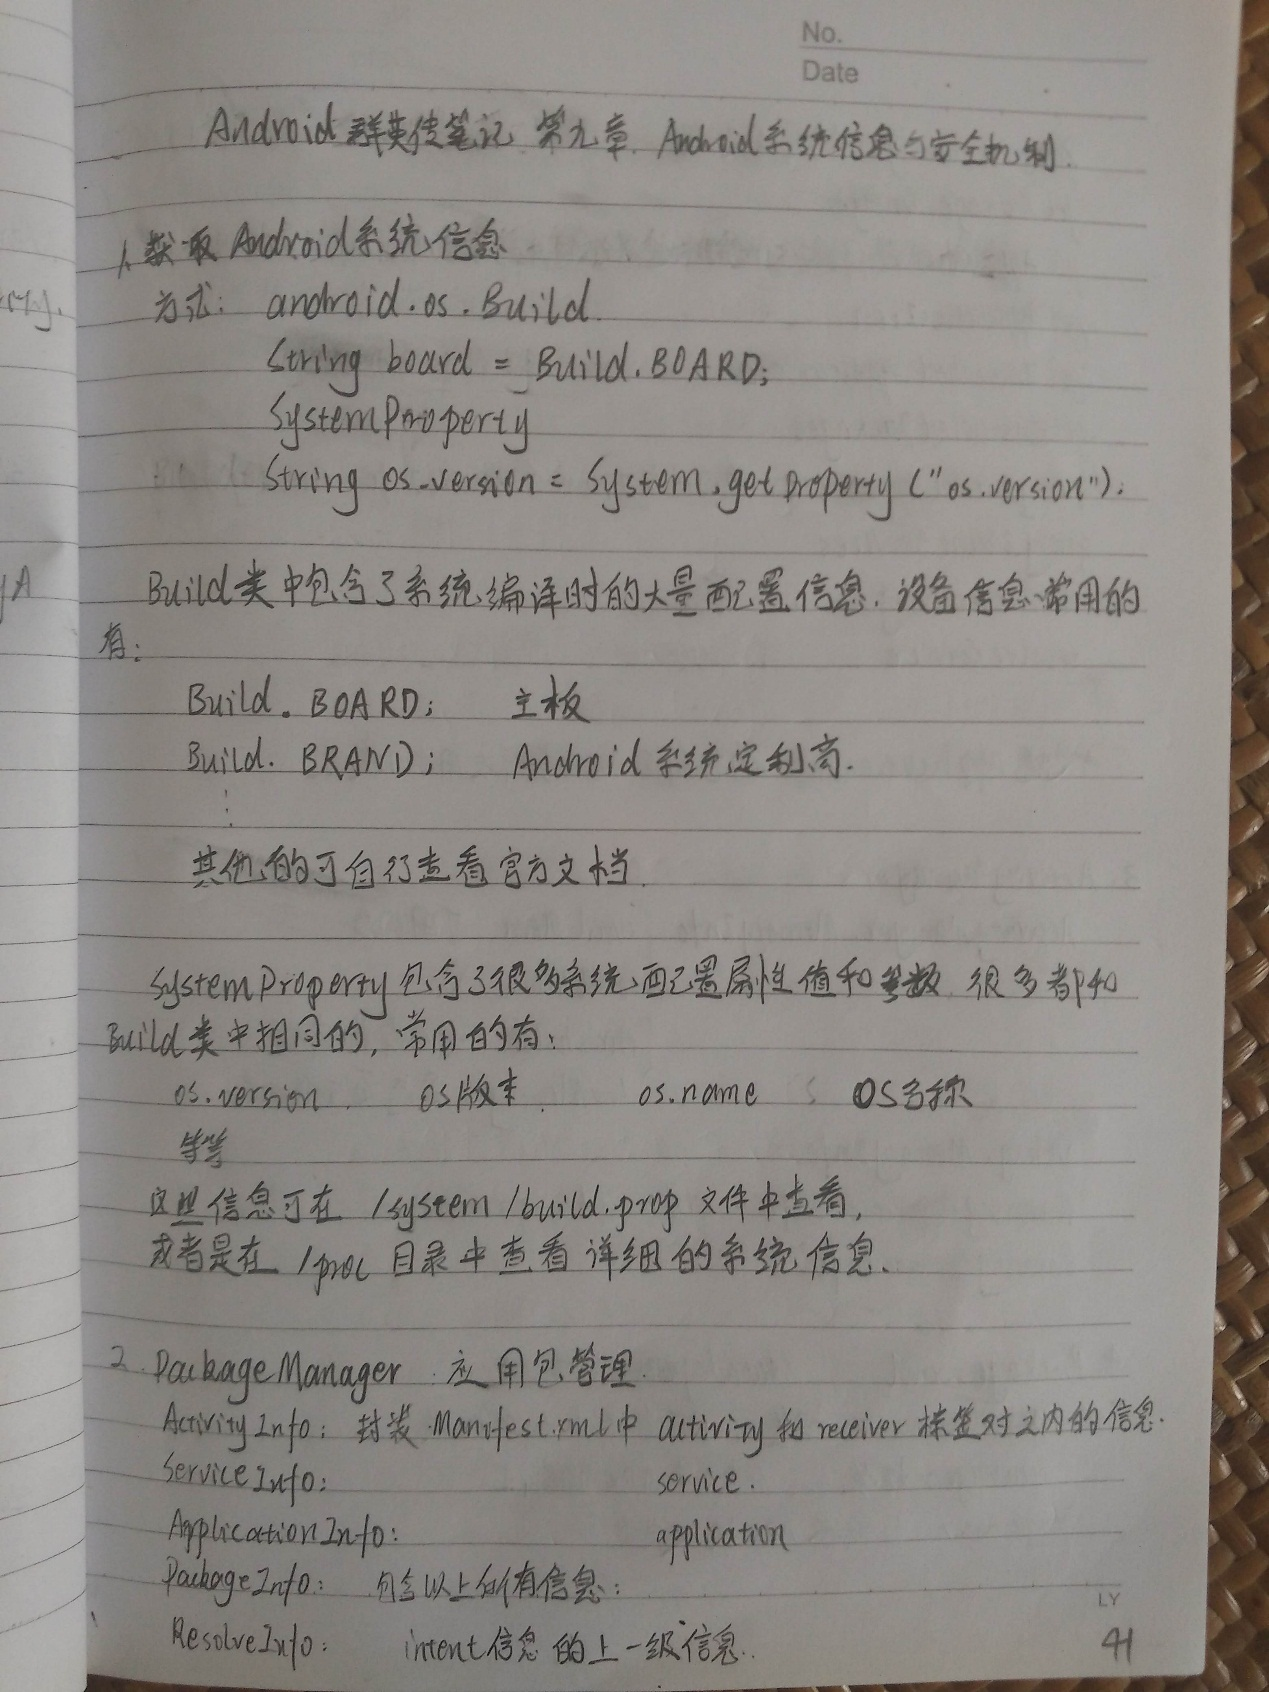 No.
Date
Android 群英传笔记 第九章. Android系统信息与安全机制.
1. 获取 Android系统信息
方式: android.os.Build.
String board = Build.BOARD;
SystemProperty
String os_version = System.getProperty("os.version").
Build类中包含了系统编译时的大量配置信息. 设备信息、常用的
有:
Build.BOARD; 主板
Build.BRAND; Android系统定制商.
⋮
其他的可自行查看官方文档.
SystemProperty包含了很多系统配置属性值和参数 很多都和
Build类中相同的, 常用的有:
os.version OS版本 os.name OS名称
等等
这些信息可在 /system/build.prop 文件中查看,
或者是在 /proc 目录中查看详细的系统信息.
2. PackageManager 应用包管理
ActivityInfo: 封装 Manifest.xml中 activity 和 receiver 标签对之内的信息.
ServiceInfo: service.
ApplicationInfo: application
PackageInfo: 包含以上所有信息;
ResolveInfo: intent信息的上一级信息.
LY
41
ty.
yA